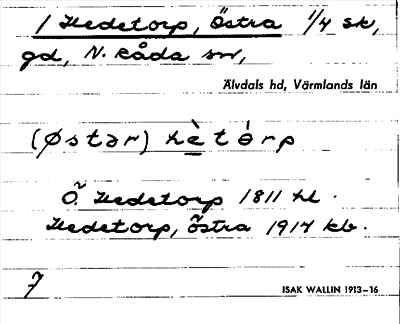 1 Hedetorp, Östra 1/4 sk,
gd, N. Råda sn,
Älvdals hd, Värmlands län
(østər) hè̠tórp
Ö. Hedetorp 1811 hl.
Hedetorp, Östra 1917 kb.
7
ISAK WALLIN 1913–16